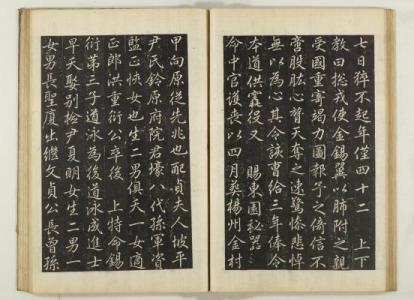 七日猝不起年僅四十二 上下
教曰摠戎使金錫翼以肺附之親
受國重寄竭力圖報予之倚信不
啻股肱心膂天奪之速驚慘悲悼
無以為心其令該曹給三年俸令
本道供 又 賜東園秘器
命中官護喪以四月葬楊州金村
甲向原從先兆也配貞夫人坡平
尹氏鈴原府院君壕八代孫軍資
監正 女也生二男俱夭一女適
正郎洪重衍公卒後 上特命錫
衍第三子道泳為後道泳成進士
早夭娶別檢尹夏明女生二男一
女男長聖廈出繼文貞公長曾孫